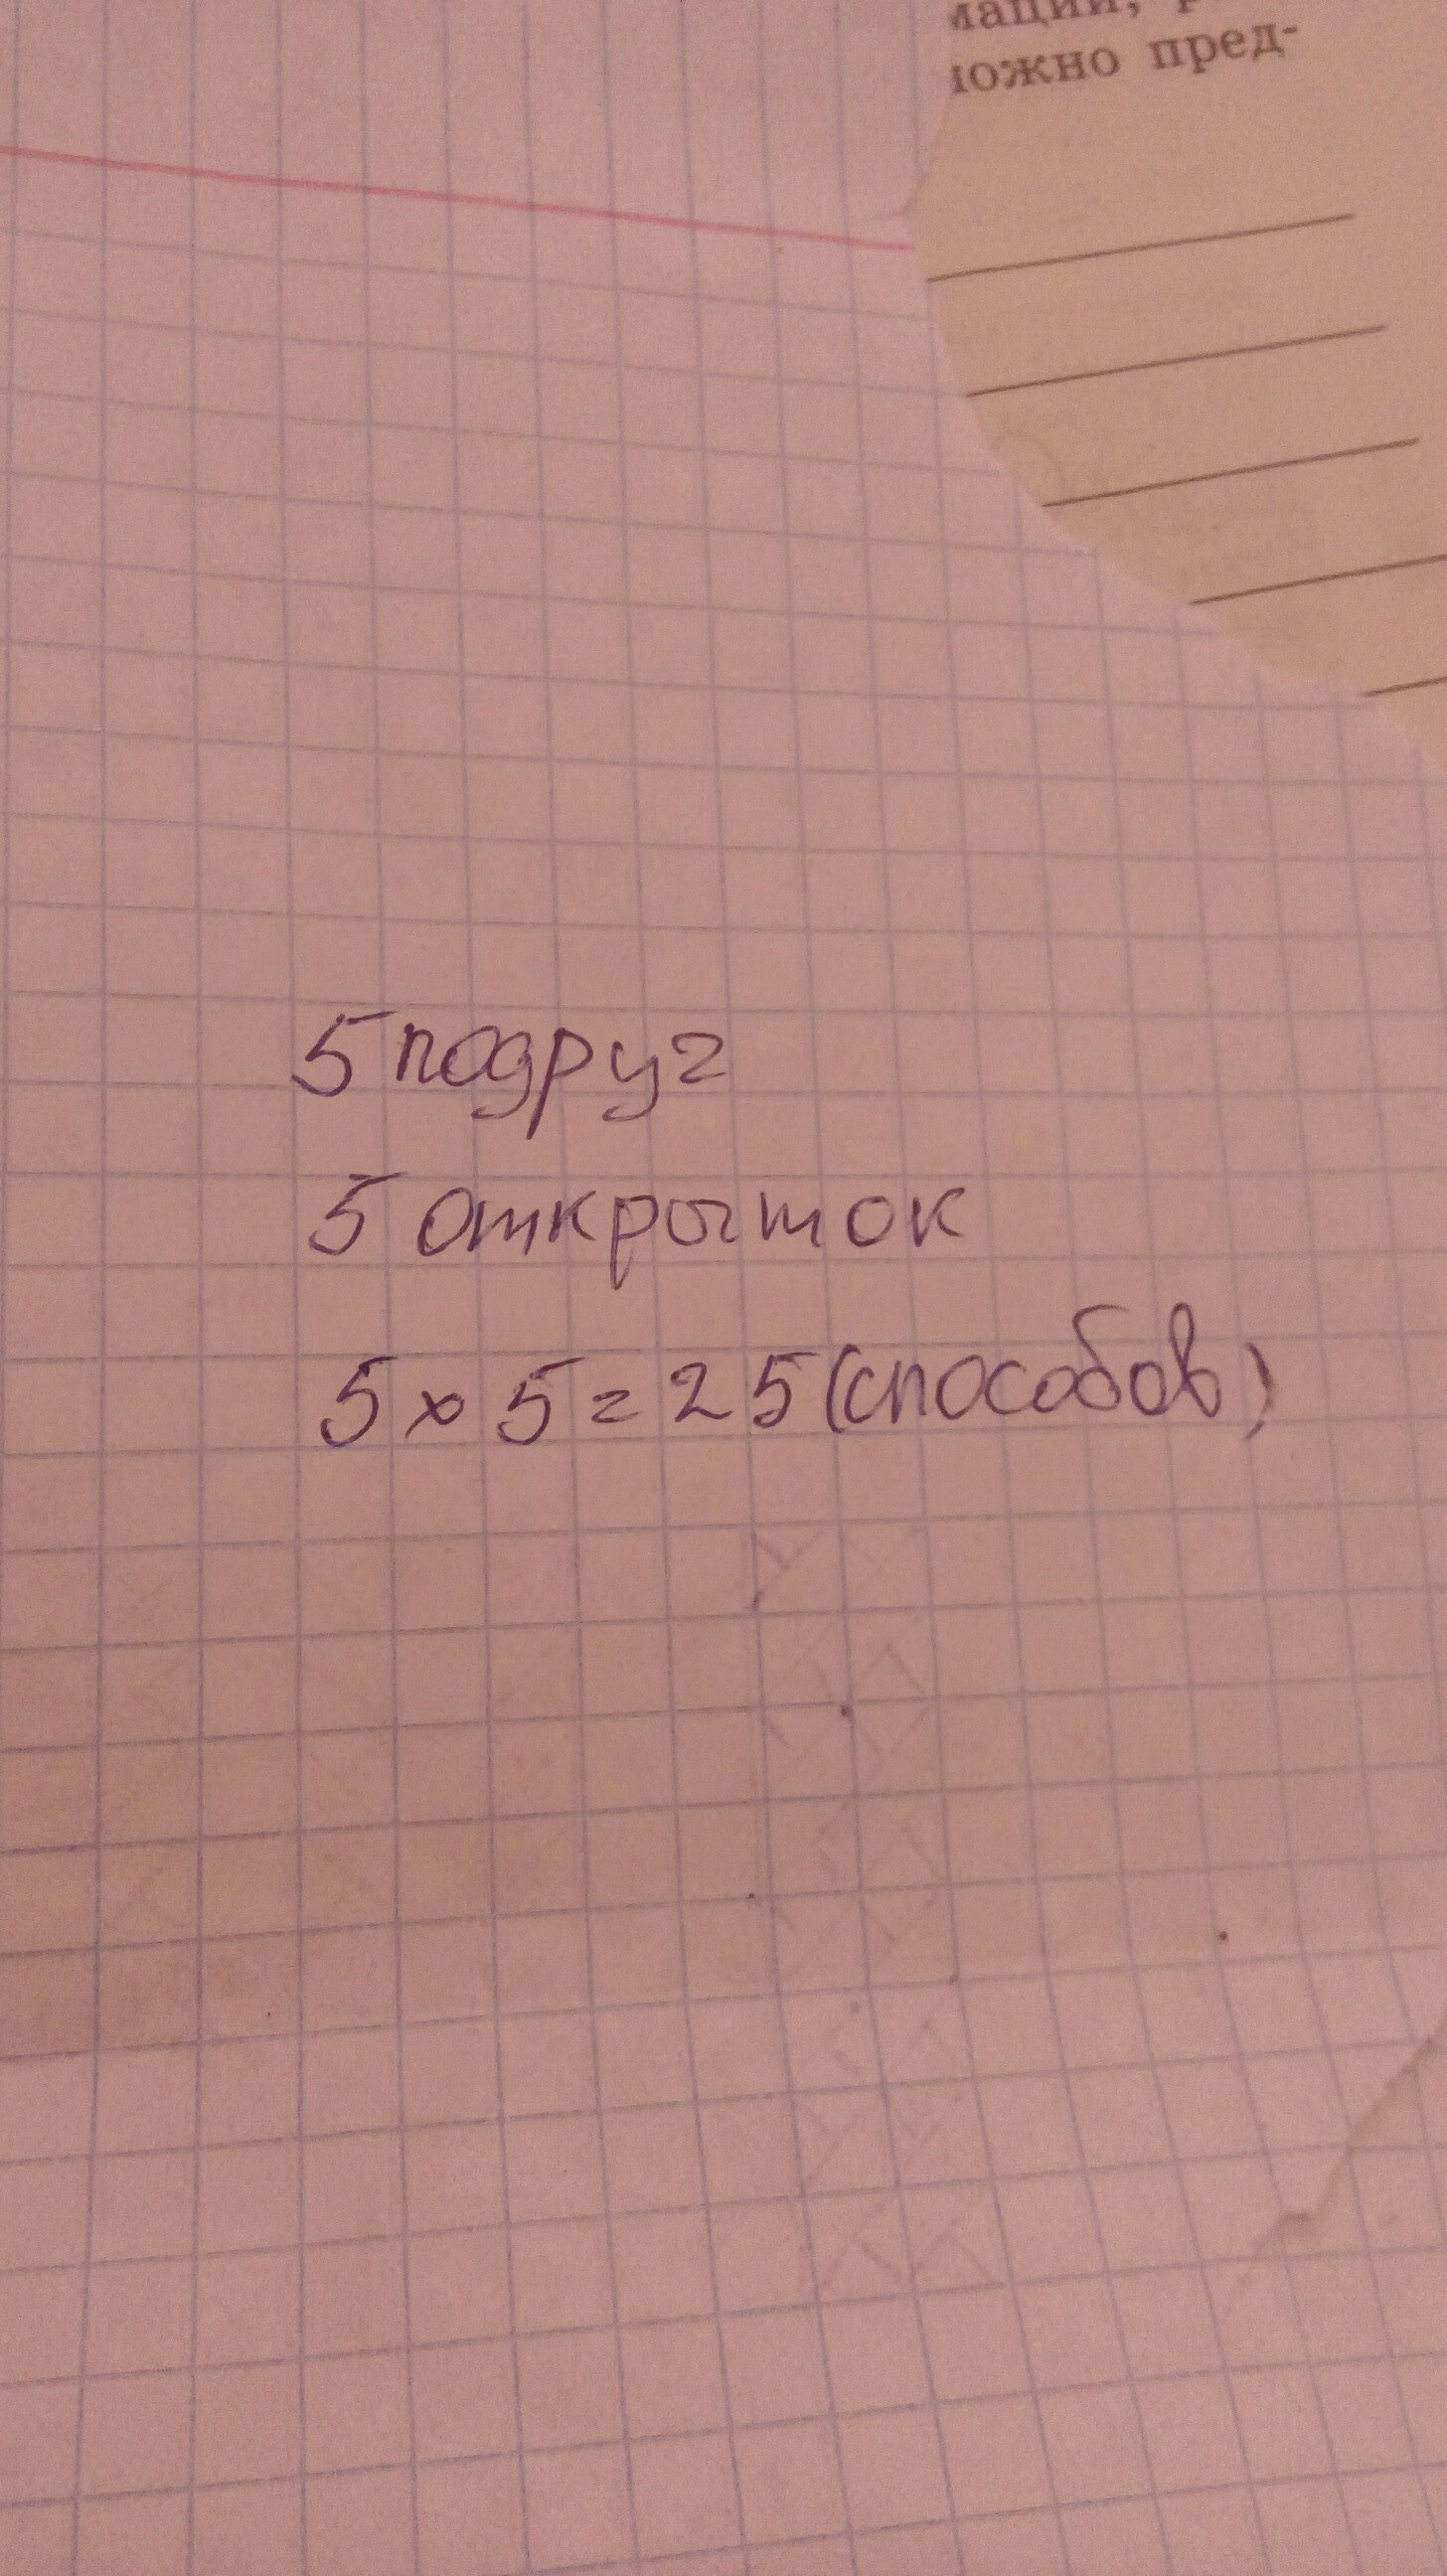 ожно пред-
5 подруг
5 открыток
5 × 5 = 25 (способов)